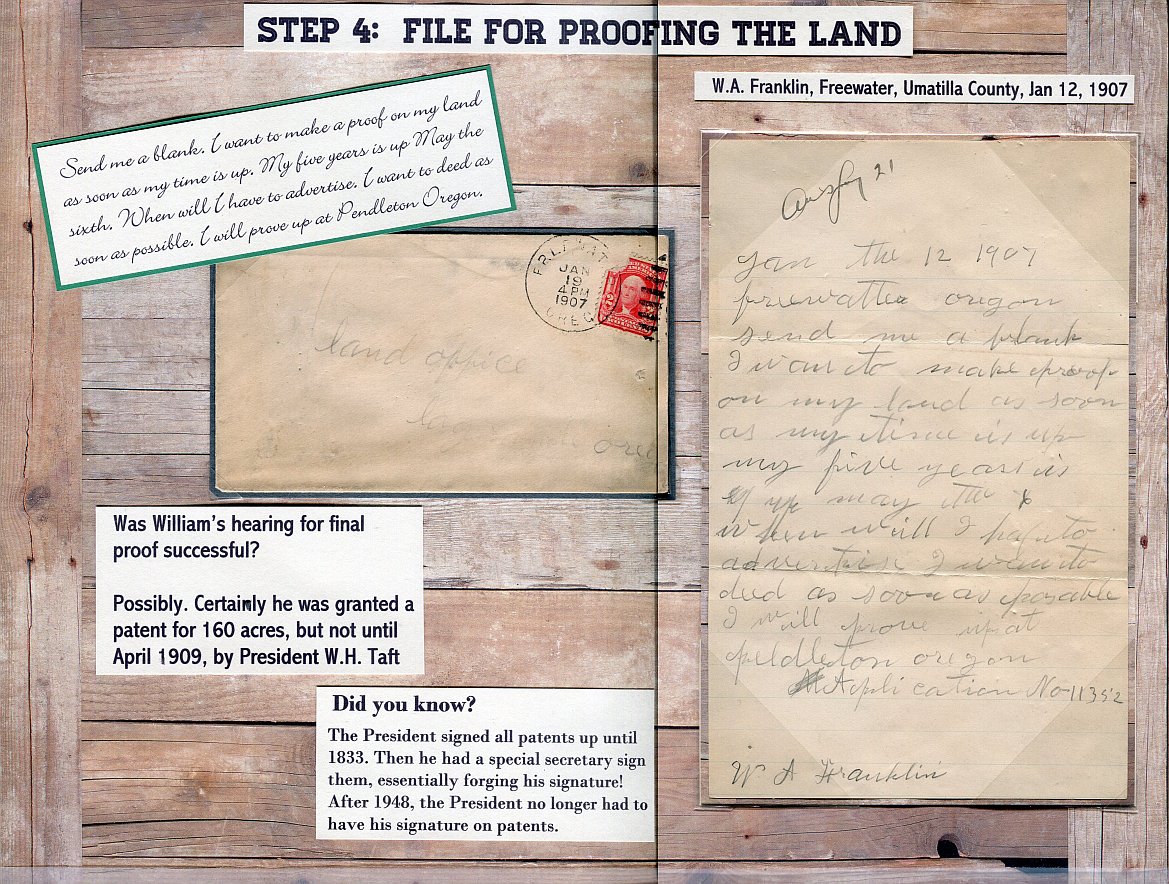 STEP 4: FILE FOR PROOFING THE LAND
W.A. Franklin, Freewater, Umatilla County, Jan 12, 1907
Send me a blank. I want to make a proof on my land
as soon as my time is up. My five years is up May the
sixth. When will I have to advertise. I want to deed as
soon as possible. I will prove up at Pendleton Oregon.
JAN
19
4 PM
1907
OREG
2
land office
ore
Was William's hearing for final
proof successful?
Possibly. Certainly he was granted a
patent for 160 acres, but not until
April 1909, by President W.H. Taft
Did you know?
The President signed all patents up until
1833. Then he had a special secretary sign
them, essentially forging his signature!
After 1948, the President no longer had to
have his signature on patents.
21
Jan the 12 1907
freewatter oregon
send me a blank
I want to make proof
on my land as soon
as my time is up
my five years is
up may the 6
when will I hafto
advertise I want to
deed as soon as posable
I will prove up at
peldleton oregon
Application No 11352
W A Franklin